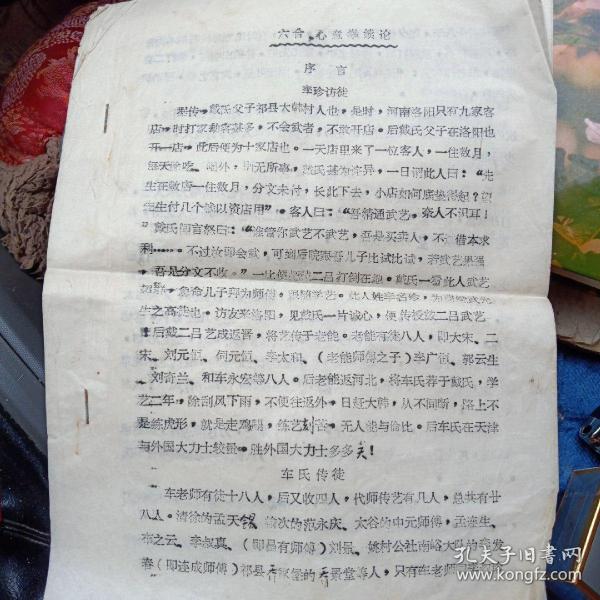 六合心意拳续论
序言
李珍访徒
戴氏父子祁县大韩村人也，是时，河南洛阳只有九家客
店，时打家劫舍甚多，不会武者，不敢开店。后戴氏父子在洛阳也
开一店，此后便为十家店也。一天店里来了一位客人，一住数月，
每天除吃 外，别无所事，戴氏甚为诧异，一日谓此人曰："先
生在敝店一住数月，分文未付，长此下去，小店如何底垫得起？望
先生付几个 以资店用"。客人曰："吾精通武艺。奈人不识耳！
"戴氏 言怒曰："谁管你武艺不武艺，吾是买卖人，不 借本求
利……。不过汝即会武，可到后院跟吾儿子比试比试，若武艺果
，吾是分文不收。"一比便 二吕打倒在地。戴氏一看此人武艺
急命儿子拜为师傅，跟随学艺。此人姓李名
生之高徒也。访友至洛阳，见戴氏一片诚心，便传授戴二吕武艺
！后戴二吕艺成返晋，将艺传于老能。老能有徒八人，即大宋、二
宋、刘元恒、何元恒、李太和、（老能师傅之子）李广恒、郭云生
刘奇兰、和车永宏等八人。后老能返河北，将车氏荐于戴氏，学
艺二年，除刮风下雨，不便往返外，日赶大韩，从不间断，路上不
是练虎形，就是走鸡腿，练艺刻苦。无人能与伦比。后车氏在天津
与外国大力士较量。胜外国大力士多多矣！
车氏传徒
车老师有徒十八人，后又收四人，代师传艺有几人，总共有廿
八人。清徐的孟天锡 榆次的范永庆、太谷的中元师傅，孟连生、
布之云、李叔真、（即昌有师傅）刘景、姚村公社南峪大队的李发
春（即连成师傅）祁县 的 景堂等人，只有车老师
孔夫子旧书网
www.kongfz.com